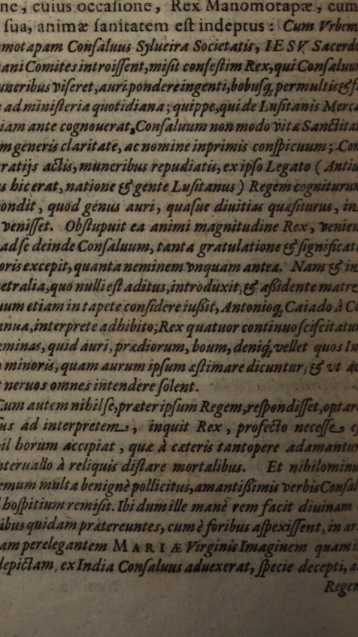 ne, cuius occasione, Rex Manomotapæ, cum
sua, animæ sanitatem est indeptus: Cum Vrbem
motapam Consaluus Sylueira Societatis, IESV Sacerd
ani Comites introissent, misit confestim Rex, qui Consalu
uneribus viseret, auri pondere ingenti, bobusq, permultis &
ad ministeria quotidiana; quippe, qui de Lusitanis Merca
iam ante cognouerat, Consaluum non modo vitæ Sanctitat
m generis claritate, ac nomine inprimis conspicuum; Con
ratijs actis, muneribus repudiatis, ex ipso Legato (Antiu
s hic erat, natione & gente Lusitanus) Regem cogniturum
ondit, quod genus auri, quasue diuitias quæsiturus, in
venisset. Obstupuit ea animi magnitudine Rex, venien
ad se deinde Consaluum, tanta gratulatione & significat
oris excepit, quanta neminem vnquam antea. Nam & in
etralia, quò nulli est aditus, introduxit, & assidente matre
uum etiam in tapete considere iußit, Antonioq, Caiado à Co
anua, interprete adhibito; Rex quatuor continuo sciscitatur
eminas, quid auri, prædiorum, boum, deniq, vellet quos In
minoris, quam aurum ipsum æstimare dicuntur, & vt ac
t neruos omnes intendere solent.
Cum autem nihil se, præter ipsum Regem, respondisset, optar
us ad interpretem, inquit Rex, profecto necesse
il horum accipiat, quæ à cæteris tantopere adamantur
nteruallo à reliquis distare mortalibus. Et nihilominu
emum multa benignè pollicitus, amantißimis verbis Consal
hospitium remisit. Ibi dum ille manè rem facit diuinam
ibus quidam prætereuntes, cum è foribus aspexissent, in ar
am perelegantem MARIÆ Virginis Imaginem quam
depictam, ex India Consaluus aduexerat, specie decepti, a
Regem